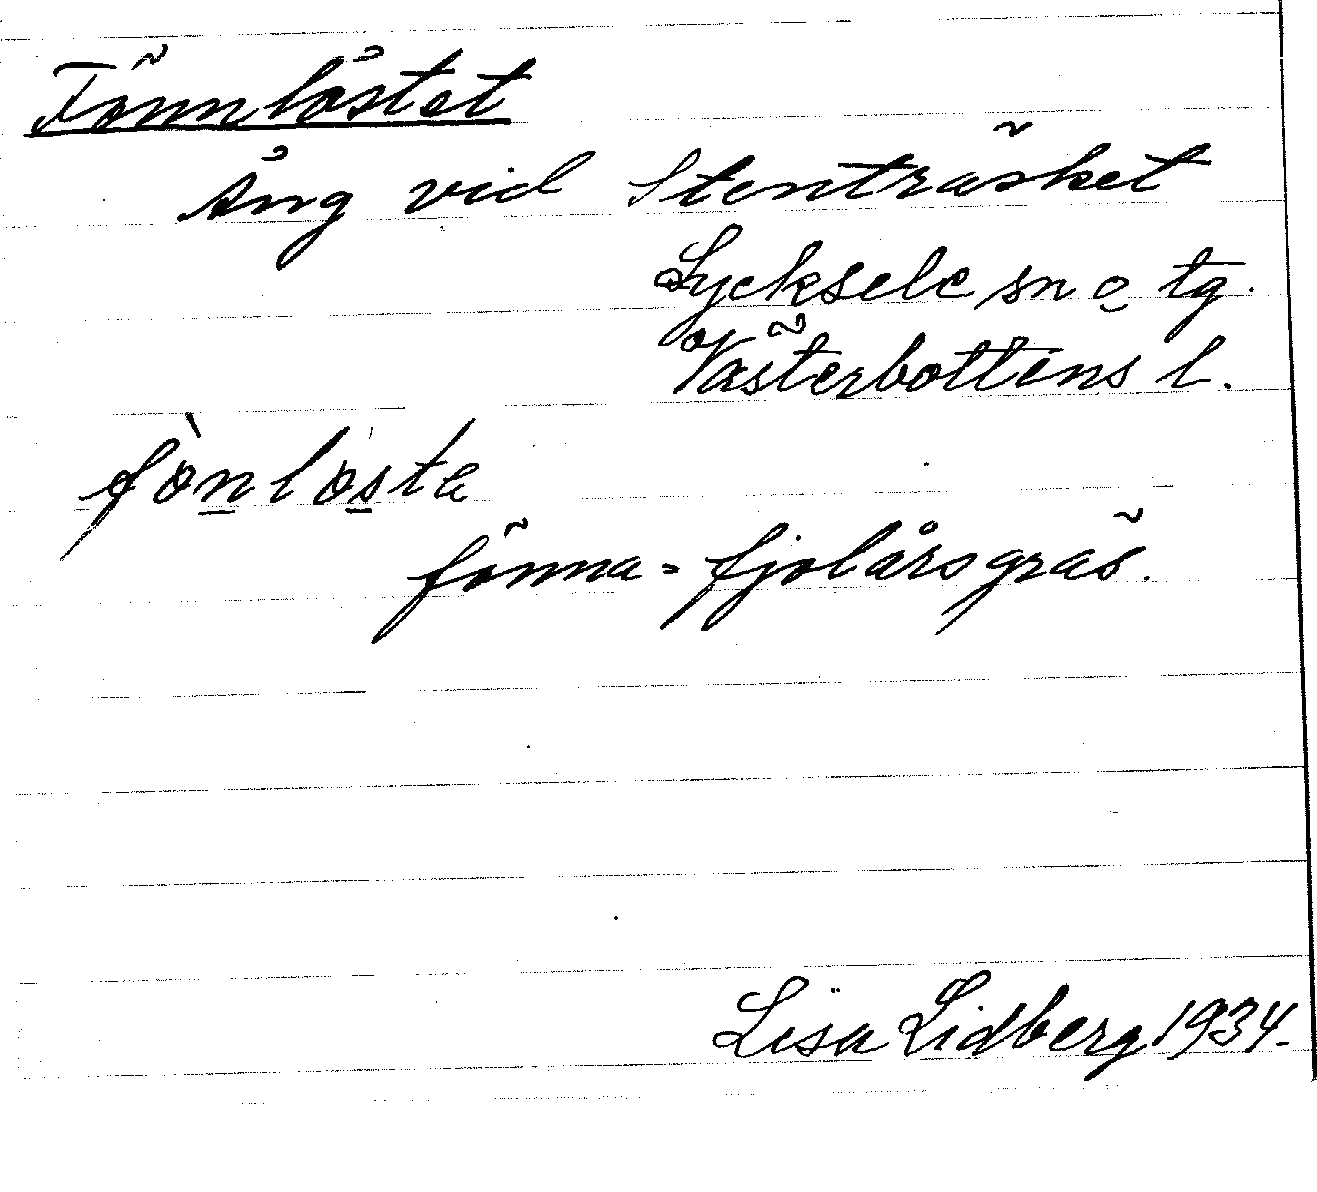 Fönnlåstet
Äng vid Stenträsket
Lycksele sn o tg.
Västerbottens l.
fònlòste
fönna = fjolårsgräs.
Lisa Lidberg 1934.